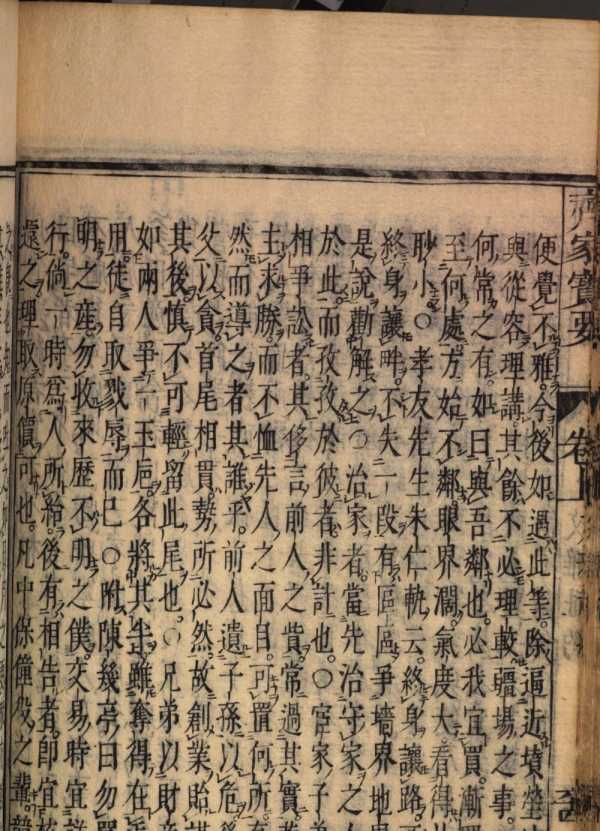 齊家寶要
卷
便覺不雅今後如過此等除逼近墳塋
與從容理講其餘不必理較疆場之事
何常之有如曰與吾鄰也必我宜買漸
至何處方始不鄰眼界濶氣度大春得
眇小○孝友先生朱仁軌云終身讓路
終身讓畔不失一段有區區爭墻界地
是說勸解之○治家者當先治守家之人
於此而孜孜於彼者非計也○宦家子
相爭訟者其侈言前人之貲常過其實
主求勝而不恤先人之面目可置何所
然而導之者其誰乎前人遺子孫以危
父以貪首尾相貫勢所必然故創業貽
其後慎不可輕留此尾也○兄弟以財
如兩人爭一玉巵各將其半雖奪得在
用徒自取戮辱而已○附陳幾亭曰勿
明之産勿收來歷不明之僕交易時宜
行倘一時爲人所紿後有相告者即宜
還之理取原價可也凡中保僮役之輩